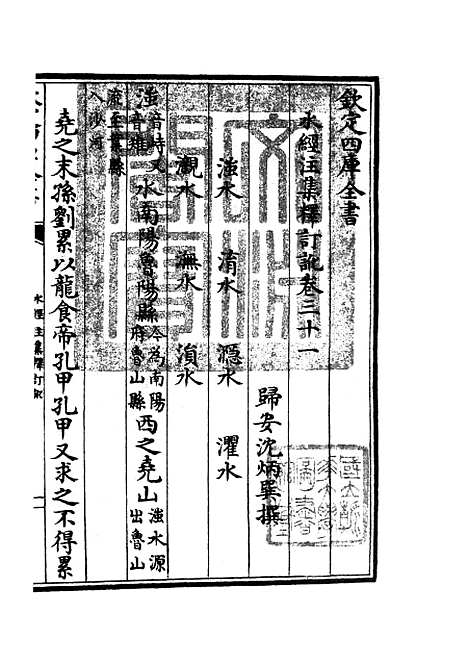 欽定四庫全書
水經注集釋訂訛卷三十一
歸安沈炳巽撰
滍水 淯水 㶏水 灈水
瀙水 潕水 溳水
滍音峙又音雉水南陽魯陽縣今為南陽府魯山縣西之堯山滍水源出魯山
縣至葉縣入沙河
堯之末孫劉累以龍食帝孔甲孔甲又求之不得累
水經注集釋訂訛